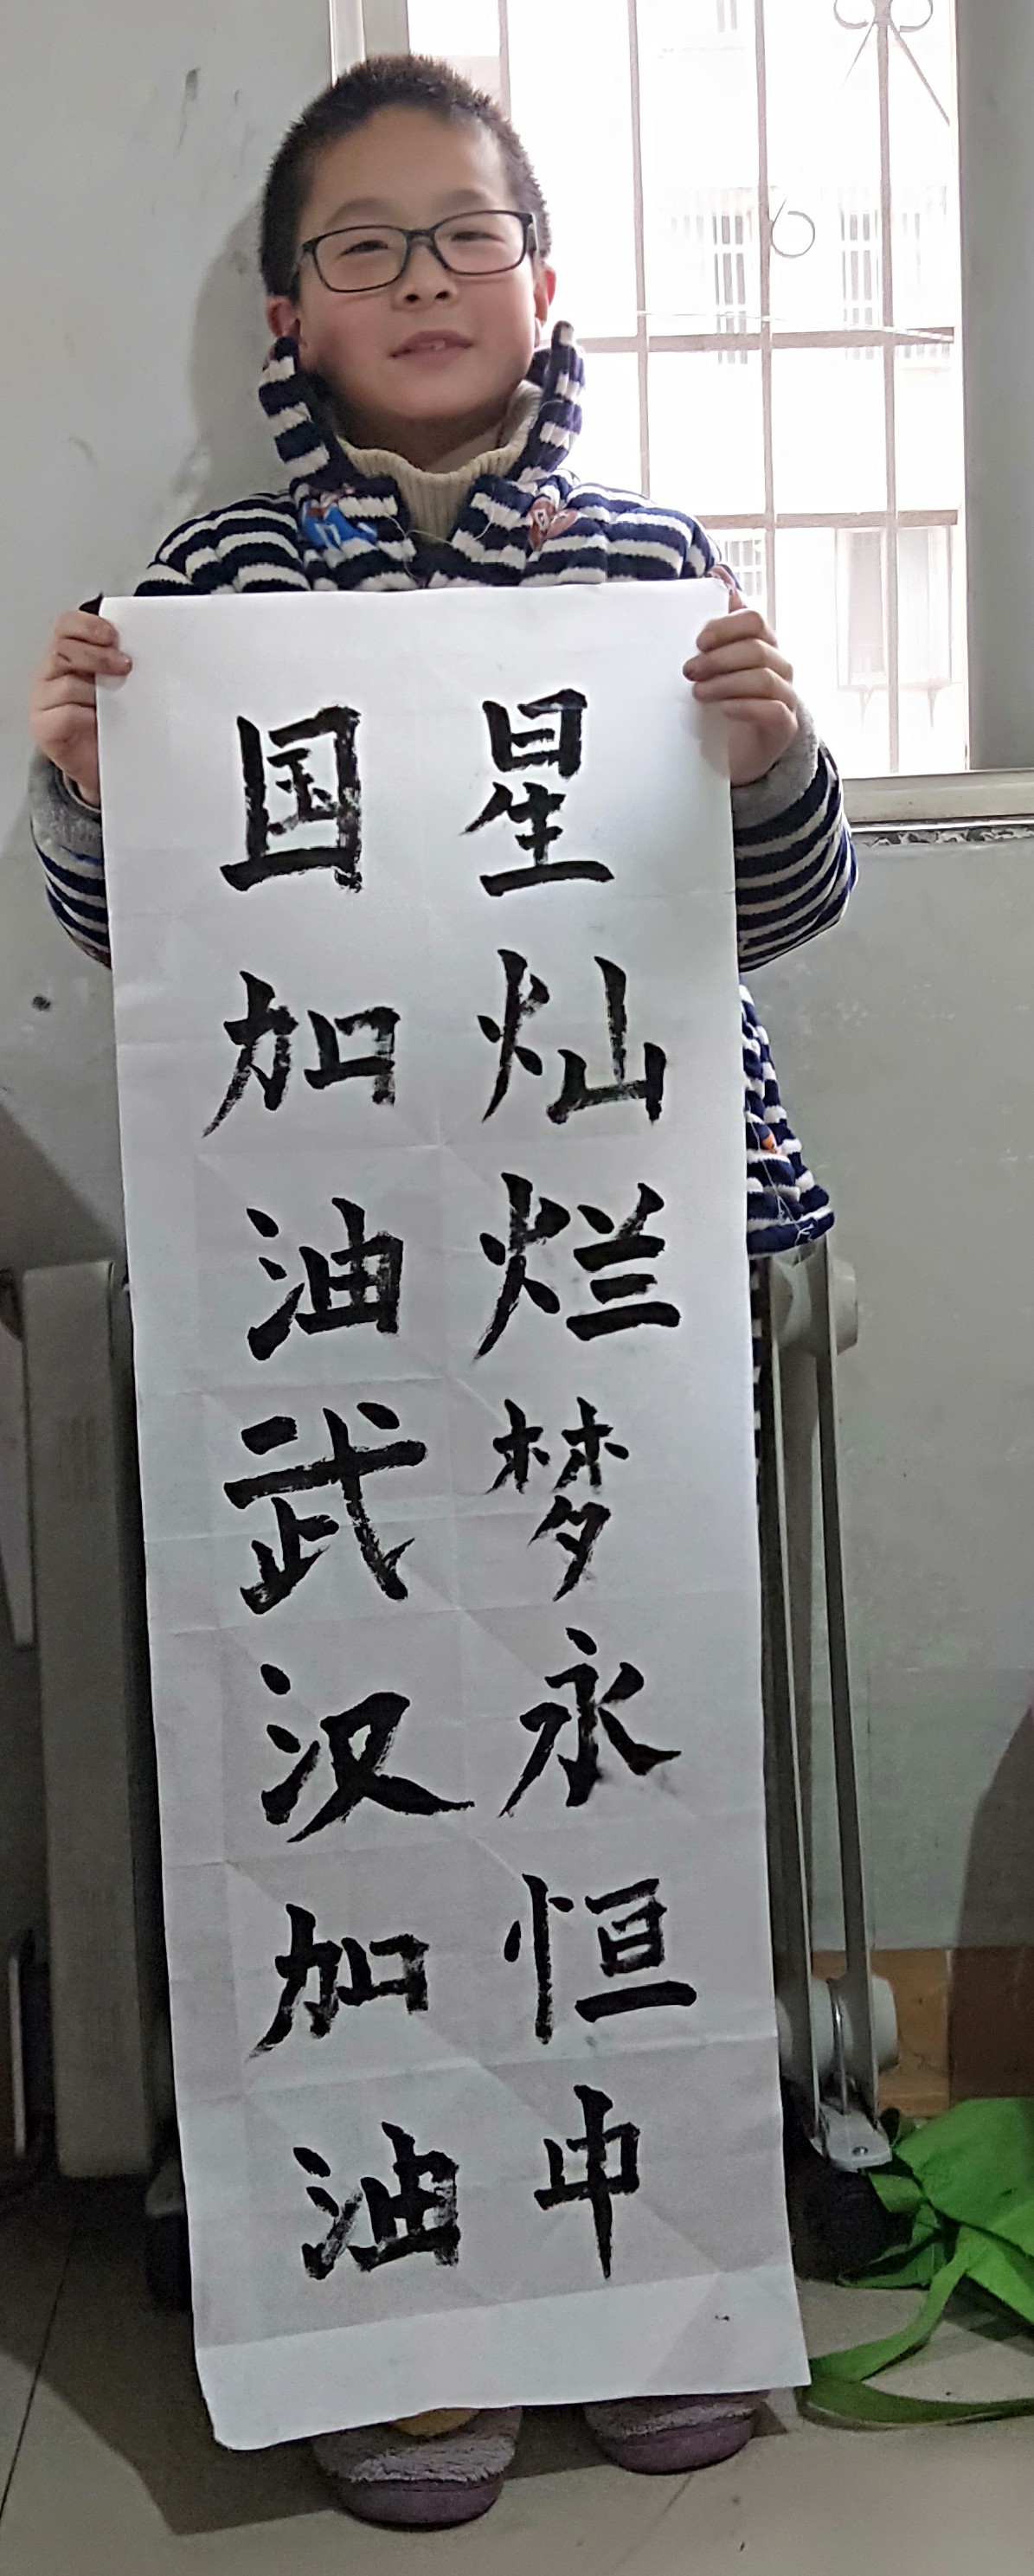 星灿烂梦永恒中
国加油武汉加油